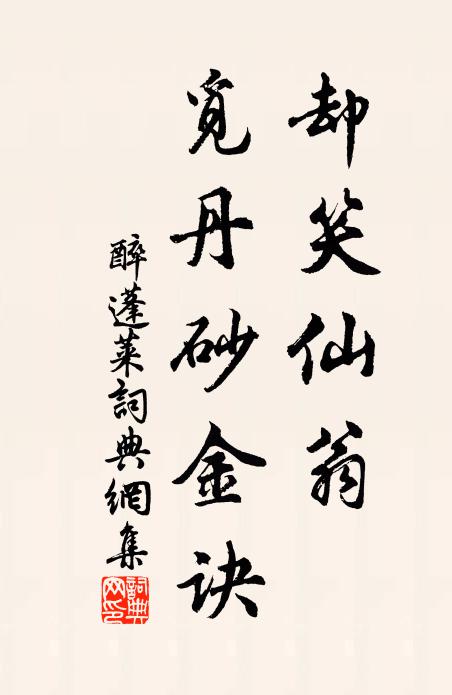 却笑仙翁
覓丹砂金訣
醉蓬萊詞典網集
詞典網印